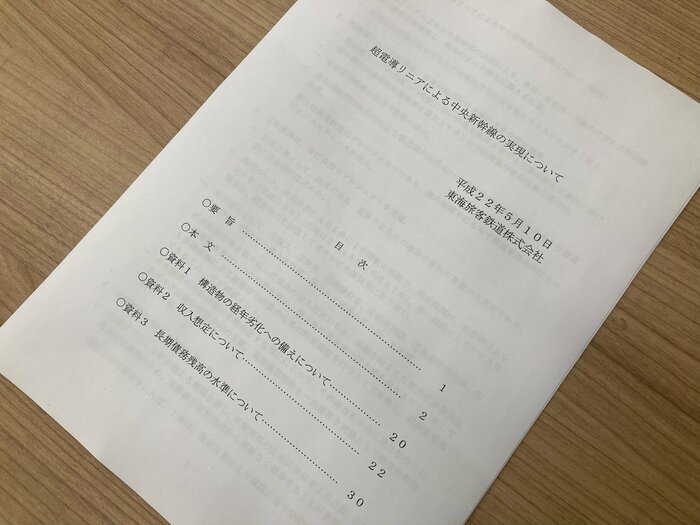 超電導リニアによる中央新幹線の実現について
平成２２年５月１０日
東海旅客鉄道株式会社
目 次
○要 旨 …………………………………… １
○本 文 …………………………………… ２
○資料１ 構造物の経年劣化への備えについて…………… ２０
○資料２ 収入想定について…………………… ２２
○資料３ 長期債務残高の水準について…………… ３０